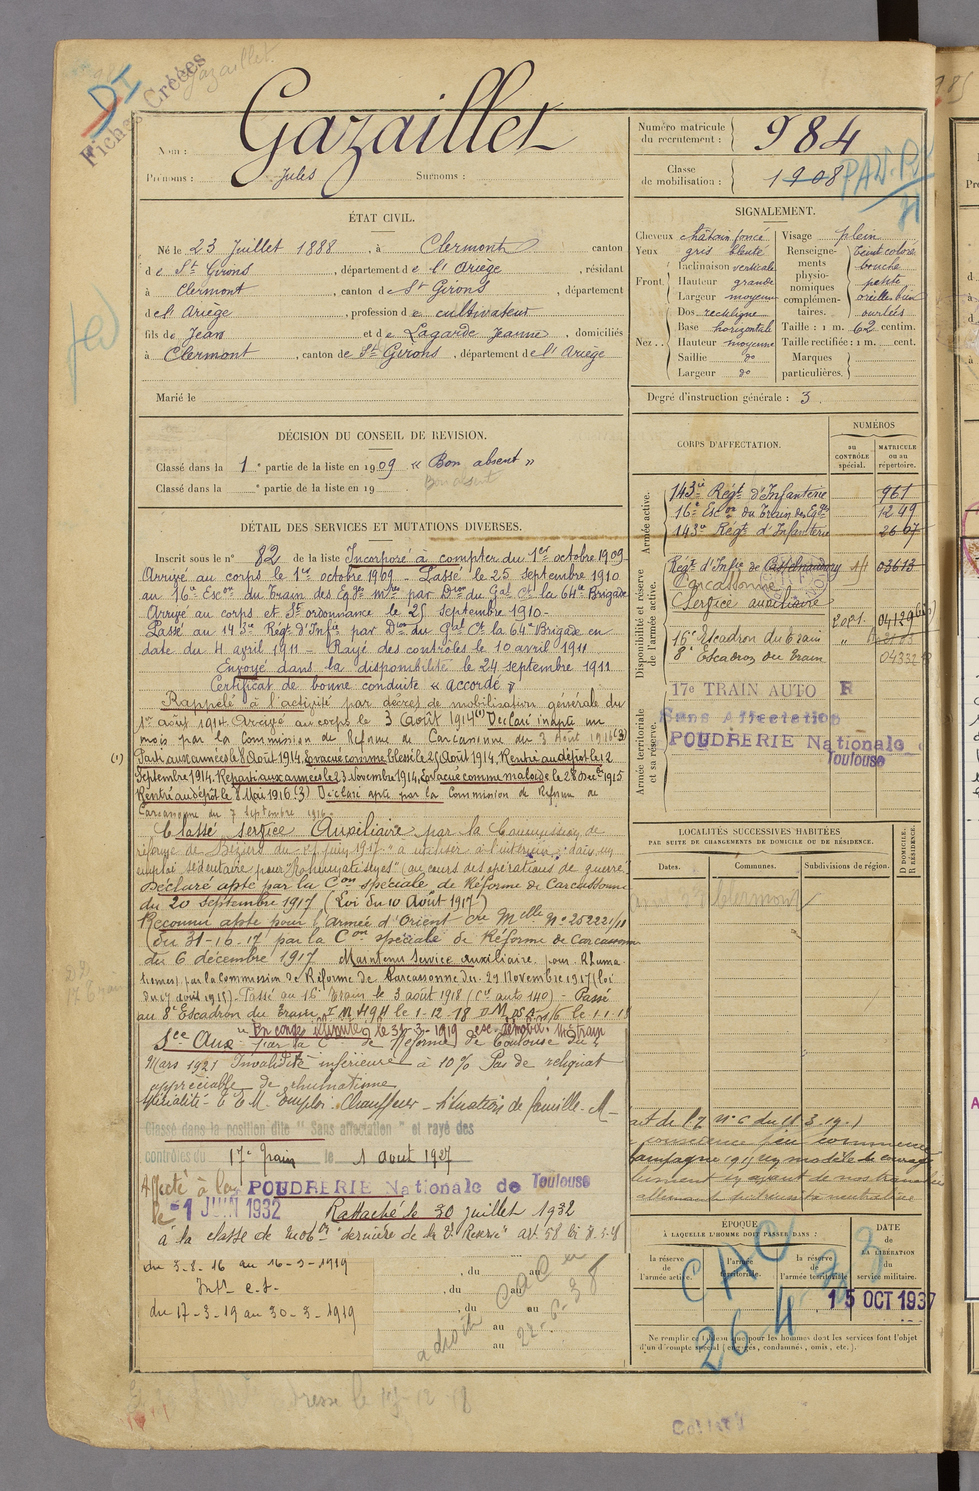 DI
Fiches Créées
Gazaillet
Nom : Gazaillet
Prénoms : Jules Surnoms :
Numéro matricule du recrutement : 984
Classe de mobilisation : 1908
ÉTAT CIVIL.
Né le 23 Juillet 1888, à Clermont canton
de St Girons, département de l'Ariège, résidant
à Clermont, canton de St Girons, département
de l'Ariège, profession de cultivateur
fils de Jean et de Lagarde Jeanne, domiciliés
à Clermont, canton de St Girons, département de l'Ariège
Marié le
SIGNALEMENT.
Cheveux châtain foncé
Yeux gris bleuté
Front Inclinaison verticale
Hauteur grande
Largeur moyenne
Nez Dos rectiligne
Base horizontale
Hauteur moyenne
Saillie do
Largeur do
Visage plein
Renseignements physionomiques complémentaires. Teint coloré
bouche
petite
oreilles bien
ourlées
Taille : 1 m. 62 centim.
Taille rectifiée : 1 m. cent.
Marques particulières.
Degré d'instruction générale : 3.
DÉCISION DU CONSEIL DE REVISION.
Classé dans la 1e partie de la liste en 1909 « Bon absent »
Classé dans la e partie de la liste en 19
Bon absent
DÉTAIL DES SERVICES ET MUTATIONS DIVERSES.
Inscrit sous le n° 82 de la liste Incorporé à compter du 1er octobre 1909
Arrivé au corps le 1er octobre 1909 - Passé le 25 septembre 1910
au 16e Escon du Train des Eqges mres par Don du Gal Ct la 64e Brigade
Arrivé au corps et St ordonnance le 25 septembre 1910 -
Passé au 143e Régt d'Infie par Don du Gal Ct la 64e Brigade en
date du 4 avril 1911 - Rayé des contrôles le 10 avril 1911
Envoyé dans la disponibilité le 24 septembre 1911
Certificat de bonne conduite « accordé »
Rappelé à l'activité par décret de mobilisation générale du
1er août 1914. Arrivé au corps le 3 août 1914 (1) Déclaré inapte un
mois par la Commission de Réforme de Carcassonne du 3 Août 1916 (3)
(1) Parti aux armées le 8 Août 1914. Evacué comme blessé le 25 Août 1914. Rentré au dépôt le 12
Septembre 1914. Reparti aux armées le 23 Novembre 1914. Evacué comme malade le 28 Décbre 1915
Rentré au dépôt le 8 Mai 1916 (3) Déclaré apte par la Commission de Réforme de
Carcassonne du 7 septembre 1916.
Classé Service Auxiliaire par la Commission de
réforme de Béziers du juin 1917 "à utiliser à l'intérieur dans un
emploi sédentaire pour "Rhumatismes" (au cours des opérations de guerre)
Déclaré apte par la Con spéciale de Réforme de Carcassonne
du 20 septembre 1917 (Loi du 10 Août 1917)
Reconnu apte pour l'armée d'Orient
(du 31-10-17 par la Con spéciale de Réforme de Carcassonne
du 6 décembre 1917 Maintenu Service auxiliaire pour Rhuma
tismes) par la Commission de Réforme de Carcassonne du 29 Novembre 1917 (loi
du 17 août 1915). Passé au 16e Train le 3 août 1918 (Cie auto 140) - Passé
au 8e Escadron du Train le 1-12-18
En congé illimité le 31-3-1919
Sce Aux par la Con de Réforme de Toulouse du
Mars 1921 Invalidité inférieure à 10% Pas de reliquat
appréciable de rhumatisme
Spécialité - C E M. Emploi : Chauffeur - Situation de famille - M -
Classé dans la position dite "Sans affectation" et rayé des
contrôles du 17e Train le 1 août 1927
Affecté à la POUDRERIE Nationale de Toulouse
le -1 JUIN 1932 Rattaché le 30 juillet 1932
à la classe de mobon "dernière de la 2e Réserve" art. 58 loi
du 3-8-16 au 16-3-1919
Int. C.S.
du 17-3-19 au 30-3-1919
, du au
, du au
, du au
au
au
CORPS D'AFFECTATION.
NUMÉROS
au CONTRÔLE spécial.
MATRICULE ou au répertoire.
Armée active.
143e Régt d'Infanterie 961
16e Escon du Train des Eqges 1249
143e Régt d'Infanterie 2667
Disponibilité et réserve de l'armée active.
Régt d'Infie de Castelnaudary 03613
Carcassonne
Service auxiliaire
16e Escadron du train
8e Escadron du Train
Armée territoriale et sa réserve.
17e TRAIN AUTO R
Sans Affectation
POUDRERIE Nationale
Toulouse
LOCALITÉS SUCCESSIVES HABITÉES
PAR SUITE DE CHANGEMENTS DE DOMICILE OU DE RÉSIDENCE.
Dates. Communes. Subdivisions de région.
D DOMICILE. R RÉSIDENCE.
Clermont
ÉPOQUE
À LAQUELLE L'HOMME DOIT PASSER DANS :
la réserve de l'armée active.
l'armée territoriale.
la réserve de l'armée territoriale
DATE de LA LIBÉRATION du service militaire.
15 OCT 1937
Ne remplir ce tableau que pour les hommes dont les services font l'objet
d'un décompte spécial (engagés, condamnés, omis, etc.).